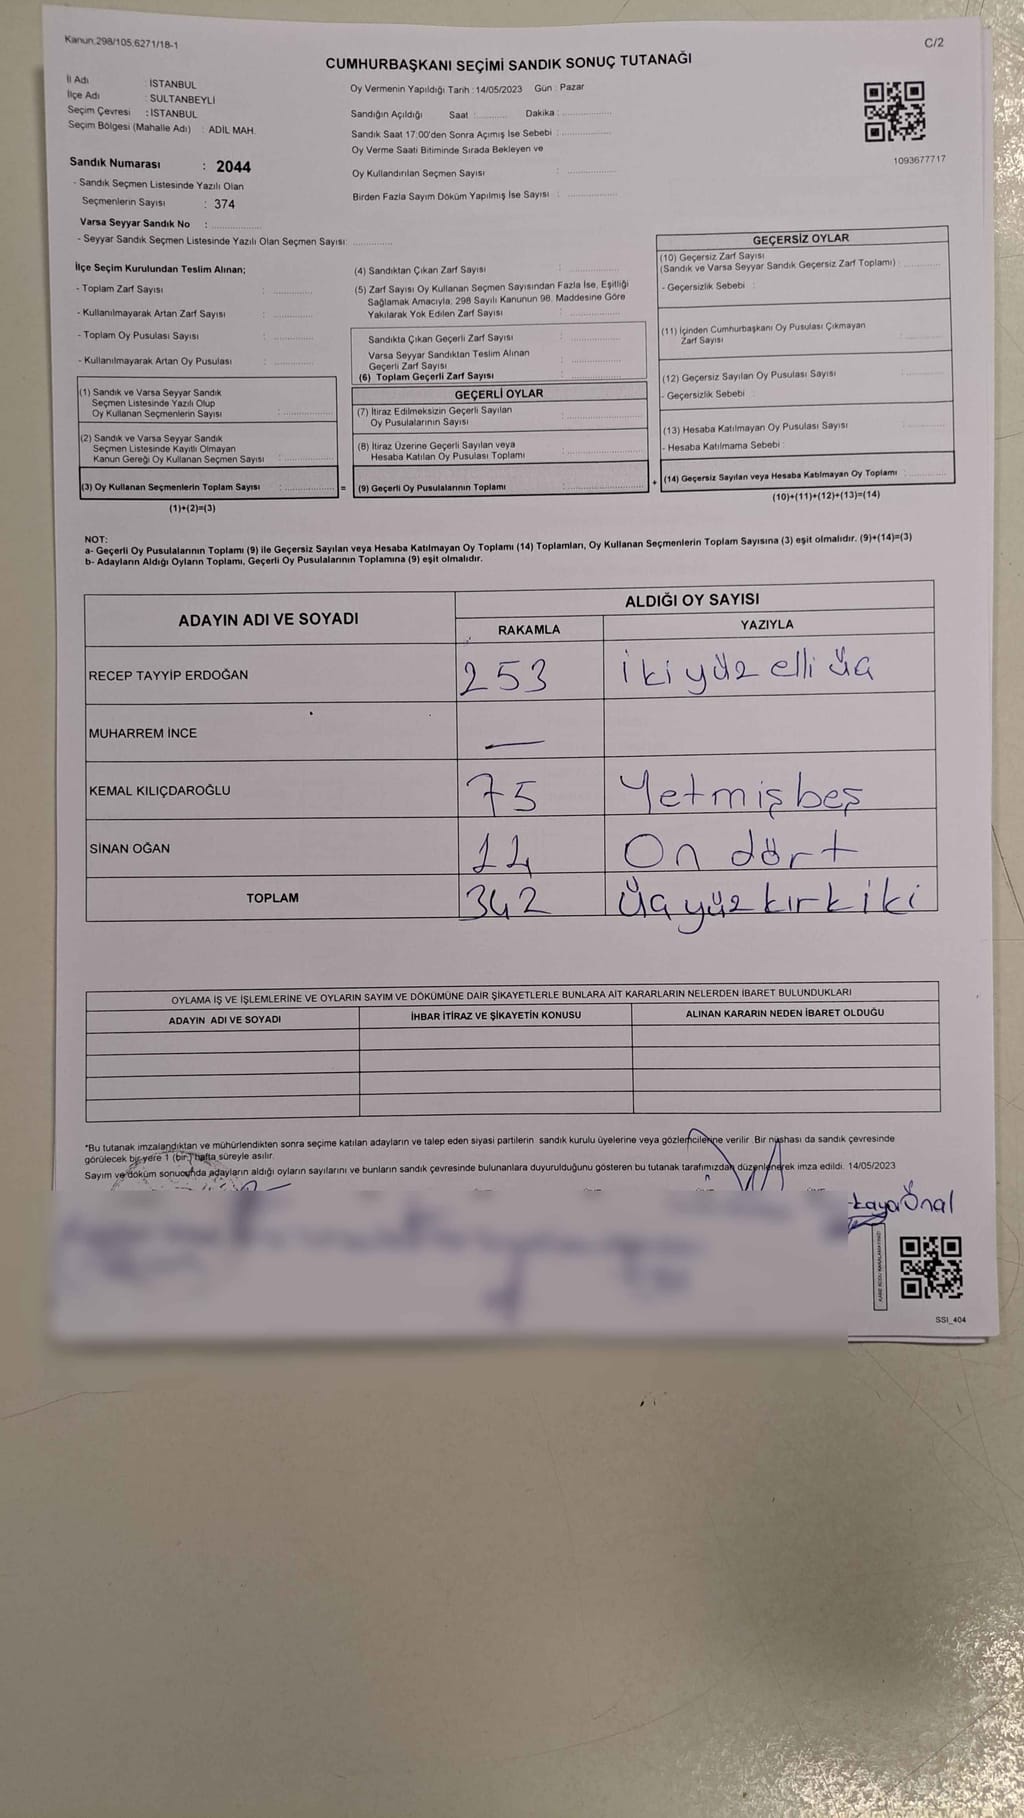 Kanun.298/105.6271/18-1
C/2
CUMHURBAŞKANI SEÇİMİ SANDIK SONUÇ TUTANAĞI
İl Adı : İSTANBUL
İlçe Adı : SULTANBEYLİ
Seçim Çevresi : İSTANBUL
Seçim Bölgesi (Mahalle Adı) : ADİL MAH.
Oy Vermenin Yapıldığı Tarih : 14/05/2023 Gün : Pazar
Sandığın Açıldığı Saat : Dakika :
Sandık Saat 17:00'den Sonra Açımış İse Sebebi :
Oy Verme Saati Bitiminde Sırada Bekleyen ve
Oy Kullandırılan Seçmen Sayısı :
Birden Fazla Sayım Döküm Yapılmış İse Sayısı :
1093677717
Sandık Numarası : 2044
- Sandık Seçmen Listesinde Yazılı Olan
Seçmenlerin Sayısı : 374
Varsa Seyyar Sandık No :
- Seyyar Sandık Seçmen Listesinde Yazılı Olan Seçmen Sayısı:
İlçe Seçim Kurulundan Teslim Alınan;
- Toplam Zarf Sayısı :
- Kullanılmayarak Artan Zarf Sayısı :
- Toplam Oy Pusulası Sayısı :
- Kullanılmayarak Artan Oy Pusulası :
(1) Sandık ve Varsa Seyyar Sandık
Seçmen Listesinde Yazılı Olup
Oy Kullanan Seçmenlerin Sayısı :
(2) Sandık ve Varsa Seyyar Sandık
Seçmen Listesinde Kayıtlı Olmayan
Kanun Gereği Oy Kullanan Seçmen Sayısı :
(3) Oy Kullanan Seçmenlerin Toplam Sayısı :
(1)+(2)=(3)
=
(4) Sandıktan Çıkan Zarf Sayısı :
(5) Zarf Sayısı Oy Kullanan Seçmen Sayısından Fazla İse, Eşitliği
Sağlamak Amacıyla, 298 Sayılı Kanunun 98. Maddesine Göre
Yakılarak Yok Edilen Zarf Sayısı :
Sandıkta Çıkan Geçerli Zarf Sayısı :
Varsa Seyyar Sandıktan Teslim Alınan
Geçerli Zarf Sayısı :
(6) Toplam Geçerli Zarf Sayısı :
GEÇERLİ OYLAR
(7) İtiraz Edilmeksizin Geçerli Sayılan
Oy Pusulalarının Sayısı :
(8) İtiraz Üzerine Geçerli Sayılan veya
Hesaba Katılan Oy Pusulası Toplamı :
(9) Geçerli Oy Pusulalarının Toplamı :
+
GEÇERSİZ OYLAR
(10) Geçersiz Zarf Sayısı
(Sandık ve Varsa Seyyar Sandık Geçersiz Zarf Toplamı) :
- Geçersizlik Sebebi :
(11) İçinden Cumhurbaşkanı Oy Pusulası Çıkmayan
Zarf Sayısı :
(12) Geçersiz Sayılan Oy Pusulası Sayısı :
- Geçersizlik Sebebi :
(13) Hesaba Katılmayan Oy Pusulası Sayısı :
- Hesaba Katılmama Sebebi :
(14) Geçersiz Sayılan veya Hesaba Katılmayan Oy Toplamı :
(10)+(11)+(12)+(13)=(14)
NOT:
a- Geçerli Oy Pusulalarının Toplamı (9) ile Geçersiz Sayılan veya Hesaba Katılmayan Oy Toplamı (14) Toplamları, Oy Kullanan Seçmenlerin Toplam Sayısına (3) eşit olmalıdır. (9)+(14)=(3)
b- Adayların Aldığı Oyların Toplamı, Geçerli Oy Pusulalarının Toplamına (9) eşit olmalıdır.
ADAYIN ADI VE SOYADI
ALDIĞI OY SAYISI
RAKAMLA YAZIYLA
RECEP TAYYİP ERDOĞAN 253 İkiyüz elli üç
MUHARREM İNCE —
KEMAL KILIÇDAROĞLU 75 Yetmişbeş
SİNAN OĞAN 14 On dört
TOPLAM 342 Üçyüzkırkiki
OYLAMA İŞ VE İŞLEMLERİNE VE OYLARIN SAYIM VE DÖKÜMÜNE DAİR ŞİKAYETLERLE BUNLARA AİT KARARLARIN NELERDEN İBARET BULUNDUKLARI
ADAYIN ADI VE SOYADI İHBAR İTİRAZ VE ŞİKAYETİN KONUSU ALINAN KARARIN NEDEN İBARET OLDUĞU
*Bu tutanak imzalandıktan ve mühürlendikten sonra seçime katılan adayların ve talep eden siyasi partilerin sandık kurulu üyelerine veya gözlemcilerine verilir. Bir nüshası da sandık çevresinde
görülecek bir yere 1 (bir) hafta süreyle asılır.
Sayım ve döküm sonucunda adayların aldığı oyların sayılarını ve bunların sandık çevresinde bulunanlara duyurulduğunu gösteren bu tutanak tarafımızdan düzenlenerek imza edildi. 14/05/2023
kaya Önal
SSI_404